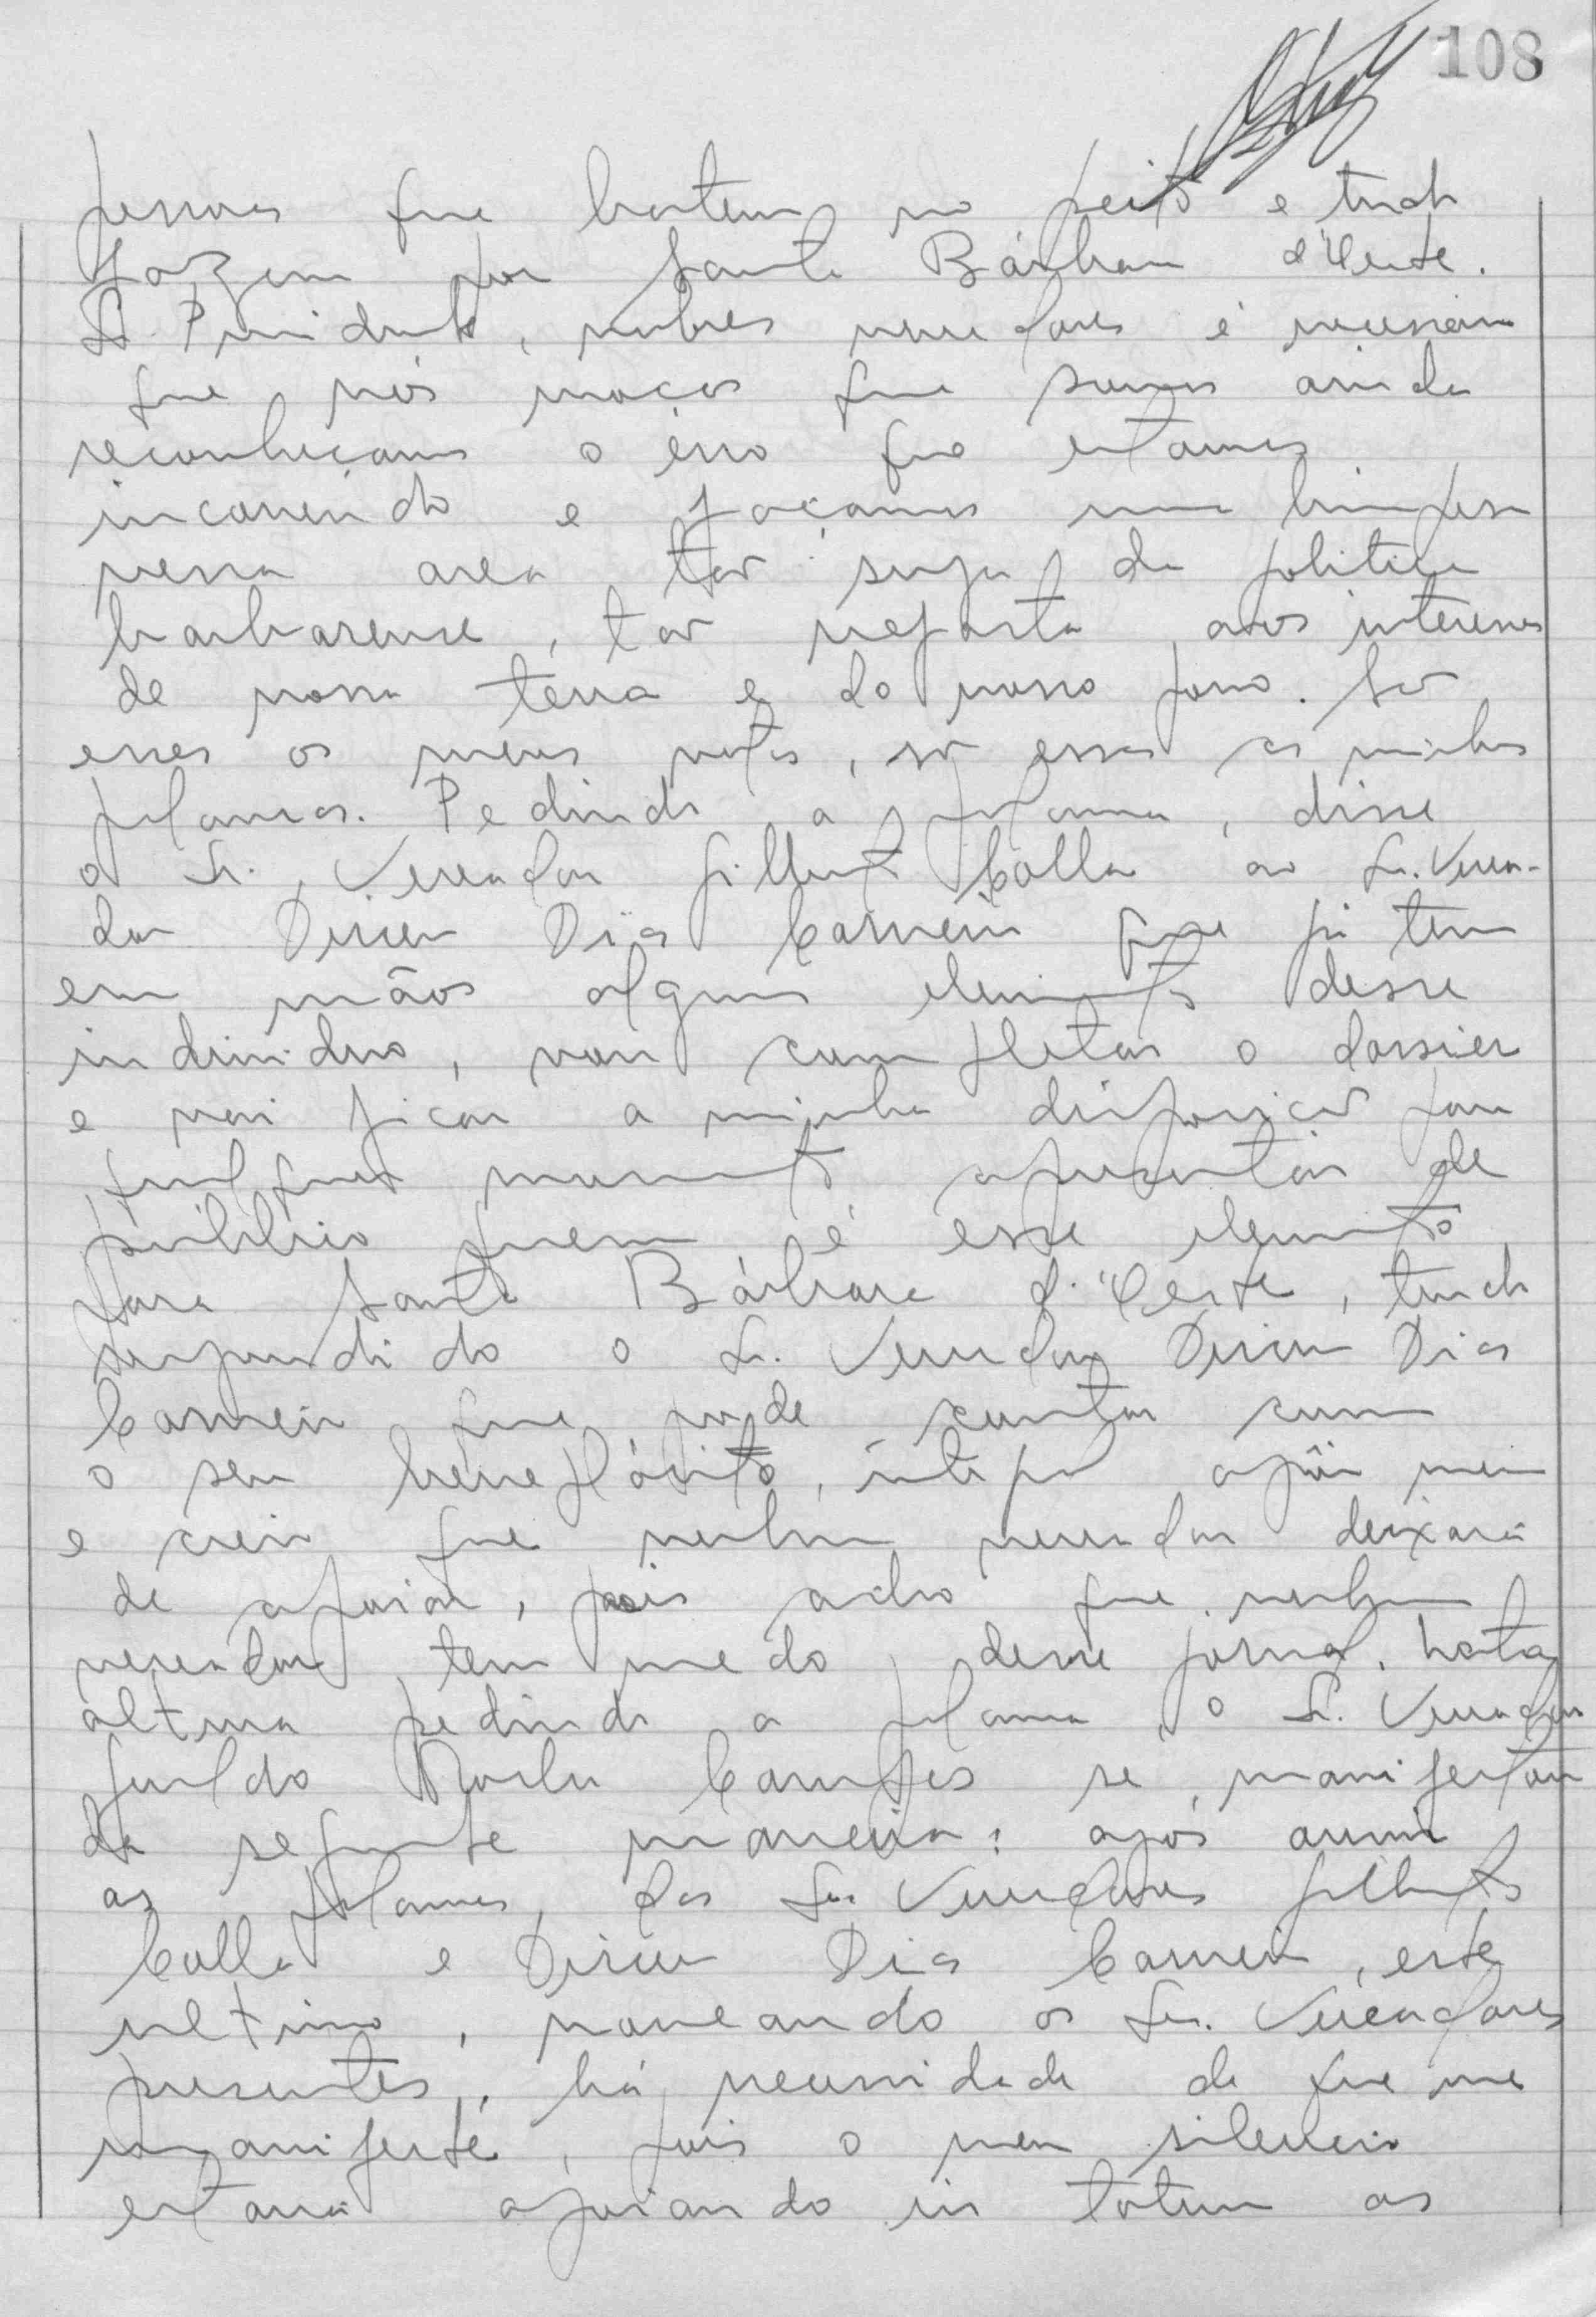 108
pessoas que batem no peito e tudo
fazem por Santa Bárbara d'Oeste.
Sr. Presidente, nobres vereadores é necessário
que nós moços que somos ainda
reconheçamos o êrro que estamos
incorrendo e façamos uma limpesa
nessa area tão suja da politica
barbarense, tão nefasta aos interesses
de nossa terra e do nosso povo. São
esses os meus votos, são essas as minhas
palavras. Pedindo a palavra, disse
o Sr. Vereador Gilberto Colla ao Sr. Verea-
dor Dirceu Dias Carneiro que já tem
em mãos alguns elementos desse
individuo, vou completar o dossier
e vai ficar a minha disposição para
qualquer momento apresentar de
público quem é esse elemento
para Santa Bárbara d'Oeste, tendo
respondido o Sr. Vereador Dirceu Dias
Carneiro que pode contar com
o seu beneplácito, integral apôio meu
e creio que nenhum vereador deixará
de apoiar, pois acho que nenhum
vereador tem medo desse jornal. Nesta
altura pedindo a palavra o Sr. Vereador
Geraldo Rocha Campos se manifestou
da seguinte maneira: após ouvir
as palavras dos Srs. Vereadores Gilberto
Colla e Dirceu Dias Carneiro, este
ultimo, nomeando os Srs. Vereadores
presentes, há necessidade de que me
manifeste, pois o meu silencio
estará apoiando in totum as